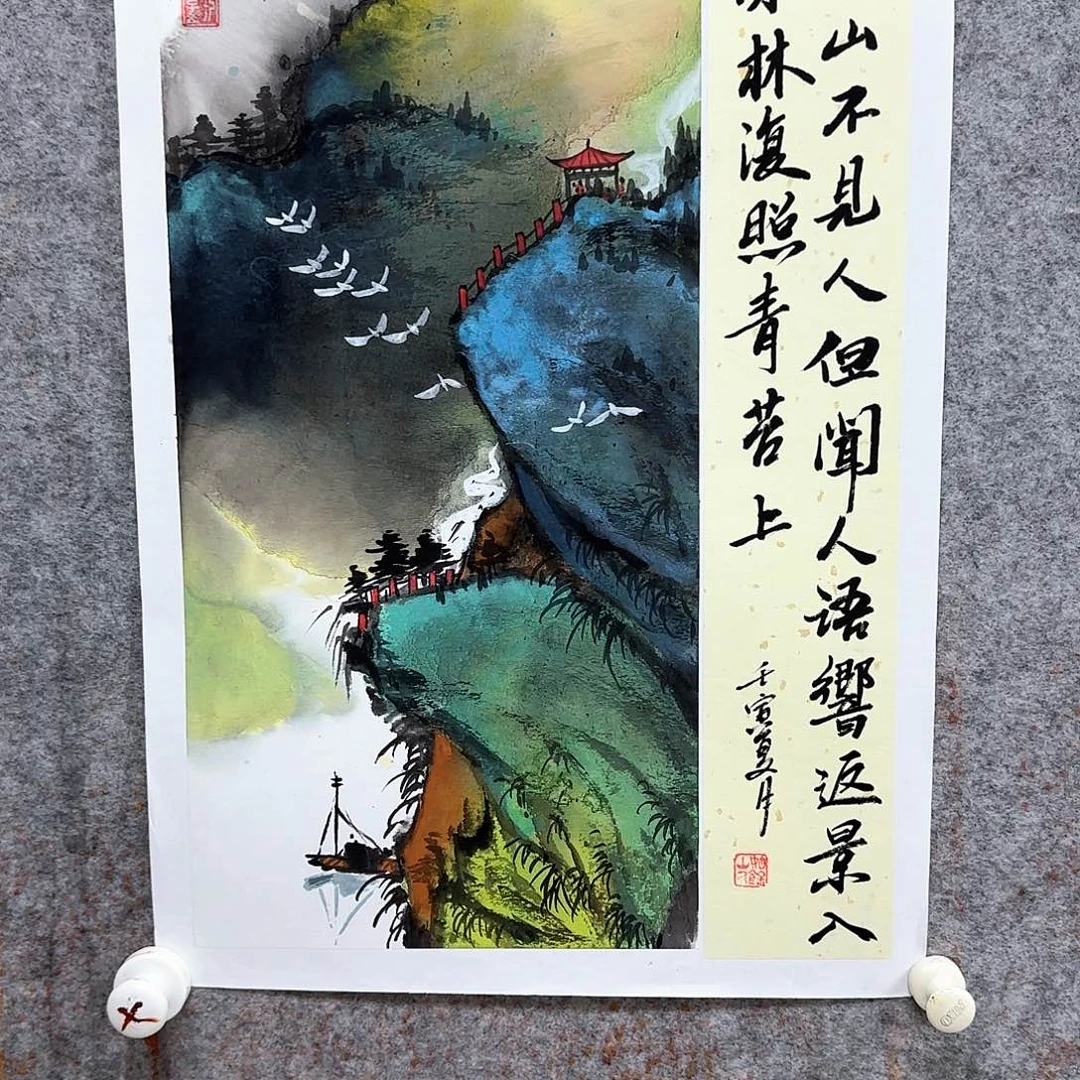 山不見人但聞人语響返景入
林復照青苔上
壬寅夏月